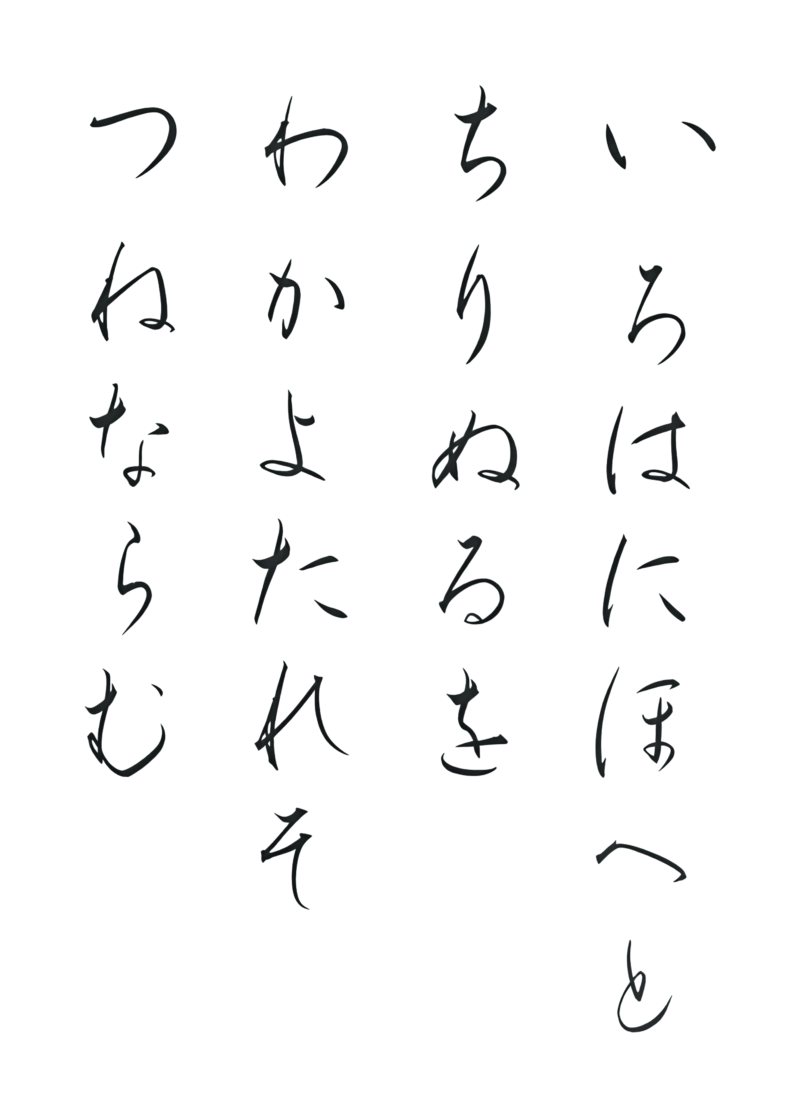 いろはにほへと
ちりぬるを
わかよたれそ
つねならむ